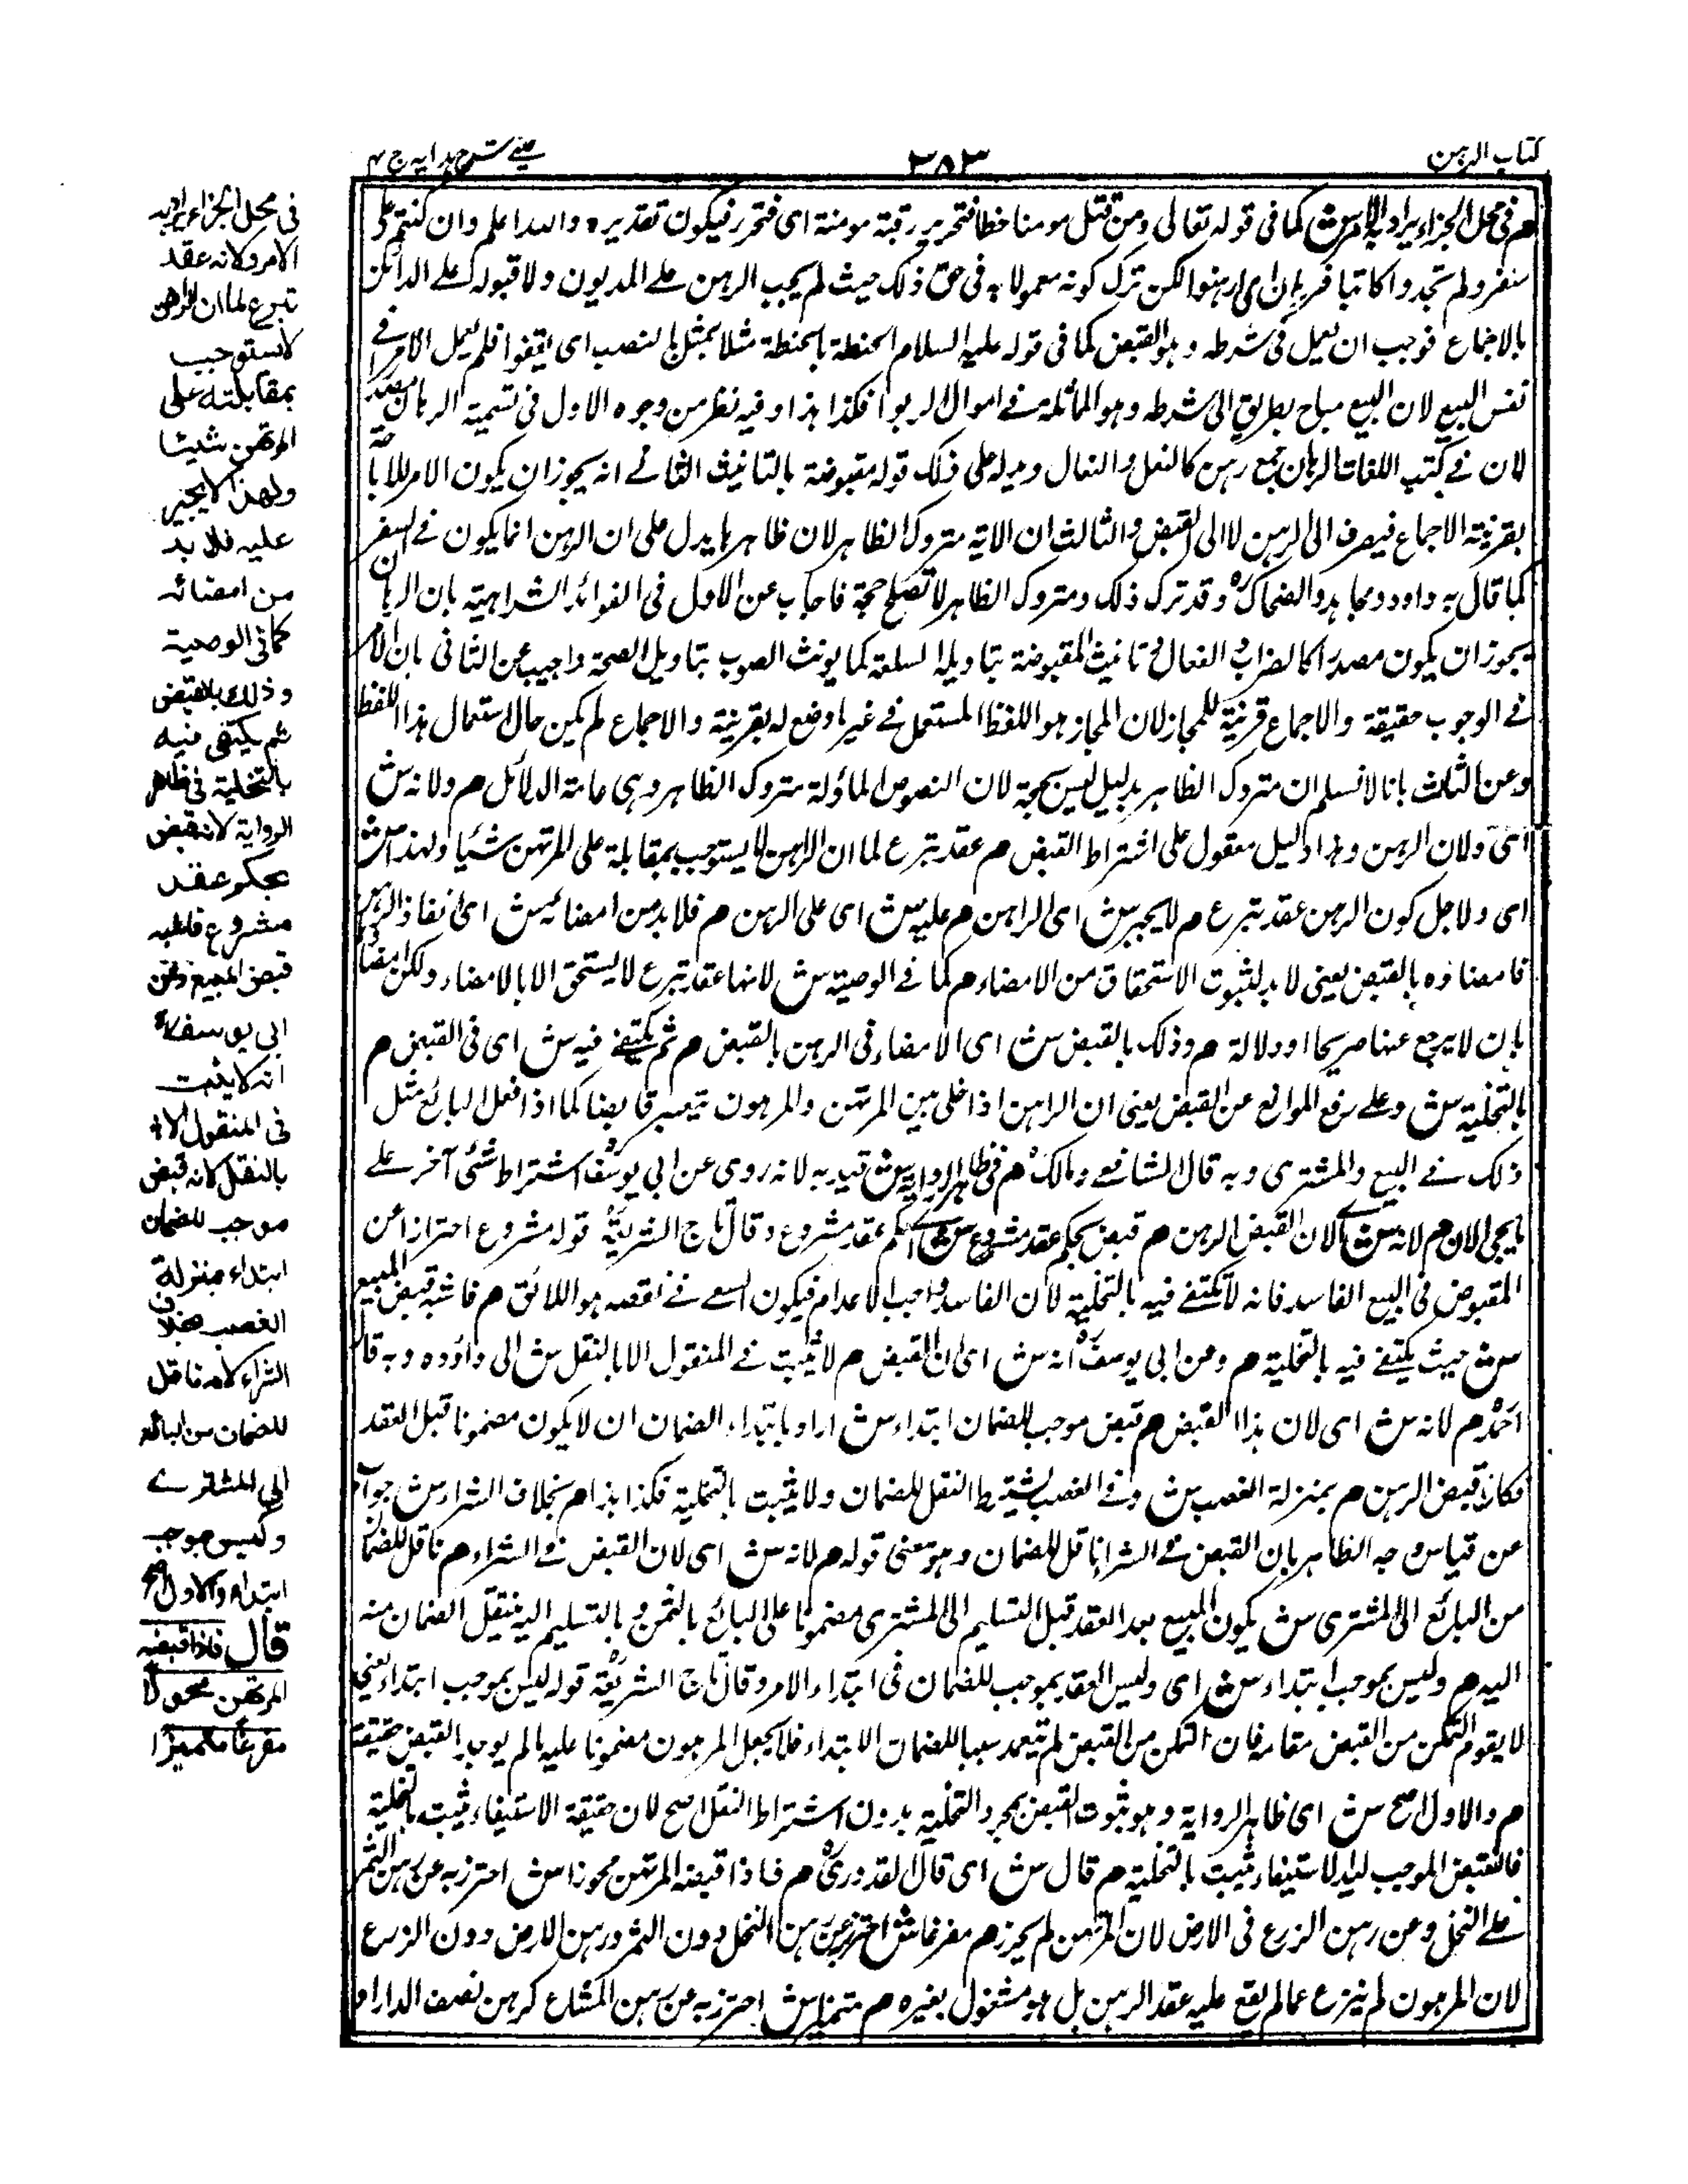 كتاب الرهن
٣٨٣
عيني شرح هدايه ج ٤
م فى محل الجزاء يراد به الامر ش كما فى قوله تعالى ومن قتل مومنا خطا فتحرير رقبة مومنة اى فتحرر فيكون تقديره والله اعلم وان كنتم على
سفر ولم تجدوا كاتبا فرهان اى ارهنوا لكن ترك كونه معمولا به فى حق ذلك حيث لم يجب الرهن على المديون ولا قبوله على الدائن
بالاجماع فوجب ان يعمل فى شرطه وهو القبض كما فى قوله عليه السلام الحنطة بالحنطة مثلا بمثل بالنصب اى بيعوا فلم يعمل الامر فى
نفس البيع لان البيع مباح بطريق الى شرطه وهو المماثلة فى اموال الربوا فكذا هذا وفيه نظر من وجوه الاول فى تسمية الرهان مصدرا
لان فى كتب اللغات الرهان جمع رهن كالنعل والنعال ويدل على ذلك قوله مقبوضة بالتانيث الثانى انه يجوز ان يكون الامر للاباحة
بقرينة الاجماع فيصرف الى الرهن لا الى القبض والثالث ان الاية متروك الظاهر لان ظاهرها يدل على ان الرهن انما يكون فى السفر
كما قال به داود ومجاهد والضحاك وقد ترك ذلك ومتروك الظاهر لا تصلح حجة فاجاب عن الاول فى الفوائد الشراهية بان الرهان
يجوز ان يكون مصدرا كالضراب والفعال وتانيث المقبوضة بتاويل السلعة كما يونث الصوب بتاويل الصحة واجيب عن الثانى بان الامر
فى الوجوب حقيقة والاجماع قرينة للمجاز لان المجاز هو اللفظ المستعمل فى غير ما وضع له بقرينة والاجماع لم يكن حال استعمال هذا اللفظ
وعن الثالث بانا لا نسلم ان متروك الظاهر بدليل ليس بحجة لان النصوص المأولة متروك الظاهر وهى عامة الدلائل م ولانه ش
اى ولان الرهن وهذا دليل معقول على اشتراط القبض م عقد تبرع لما ان الراهن لا يستوجب بمقابلة على المرتهن شيئا ولهذا ش
اى ولاجل كون الرهن عقد تبرع م لا يجبر ش اى الراهن م عليه ش اى على الرهن م فلا بد من امضائه ش اى انفاذ الرهن
فامضاؤه بالقبض يعنى لا بد لثبوت الاستحقاق من الامضاء م كما فى الوصية ش لانها عقد تبرع لا يستحق الا بالامضاء ولكن امضاؤها
بان لا يرجع عنها صريحا او دلالة م وذلك بالقبض ش اى الامضاء فى الرهن بالقبض م ثم يكتفى فيه ش اى فى القبض م
بالتخلية ش وعلى رفع الموانع عن القبض يعنى ان الراهن اذا خلى بين المرتهن والمرهون يعتبر قابضا كما اذا فعل البائع مثل
ذلك فى البيع والمشترى وبه قال الشافعى ومالك م فى ظاهر الرواية ش قيد به لانه روى عن ابى يوسف اشتراط شئ آخر على
ما يجئ الان م لانه ش اى لان القبض الرهن م قبض بحكم عقد مشروع ش اى بحكم عقد مشروع وقال تاج الشريعة قوله مشروع احترازا عن
المقبوض فى البيع الفاسد فانه لا يكتفى فيه بالتخلية لان الفاسد واجب الاعدام فيكون السعى فى نقضه هو اللائق م فاشبه قبض المبيع
ش حيث يكتفى فيه بالتخلية م وعن ابى يوسف انه ش اى ان القبض م لا يثبت فى المنقول الا بالنقل ش الى داؤده وبه قال
احمد م لانه ش اى لان هذا القبض م قبض موجب للضمان ابتداء ش اراد بابتداء الضمان ان لا يكون مضمونا قبل العقد
فكان قبض الرهن م بمنزلة الغصب ش وفى الغصب يشترط النقل للضمان ولا يثبت بالتخلية فكذا هذا م بخلاف الشراء ش جواب
عن قياس وجه الظاهر بان القبض فى الشراء ناقل للضمان وهو معنى قوله م لانه ش اى لان القبض فى الشراء م ناقل للضمان
من البائع الى المشترى ش يكون المبيع بعد العقد قبل التسليم الى المشترى مضمونا على البائع بالثمن وبالتسليم اليه ينتقل الضمان منه
اليه م وليس بموجب ابتداء ش اى وليس العقد بموجب للضمان فى ابتداء الامر وقال تاج الشريعة قوله ليس بموجب ابتداء يعنى
لا يقوم التمكن من القبض مقامه فان التمكن من القبض لم يتعهد سببا للضمان الابتداء فلا يجعل المرهون مضمونا عليه ما لم يوجد القبض حقيقة
م والاول اصح ش اى ظاهر الرواية وهو ثبوت القبض بمجرد التخلية بدون اشتراط النقل اصح لان حقيقة الاستيفاء يثبت بالتخلية
فالقبض الموجب ليد الاستيفاء يثبت بالتخلية م قال ش اى قال القدورى م فاذا قبضه المرتهن محوزا ش احترز به عن رهن الثمر
على النخل وعن رهن الزرع فى الارض لان المرتهن لم يحرزه م مفرغا ش احترز عن رهن النخل دون الثمر ورهن الارض دون الزرع
لان المرهون لم ينزع عما لم يقع عليه عقد الرهن بل هو مشغول بغيره م متميزا ش احترز به عن رهن المشاع كرهن نصف الدار او
فى محل الجزاء يراد به
الامر ولانه عقد
تبرع لما ان الراهن
لا يستوجب
بمقابلته على
المرتهن شيئا
ولهذا لا يجبر
عليه فلا بد
من امضائه
كما فى الوصية
وذلك بالقبض
ثم يكتفى فيه
بالتخلية فى ظاهر
الرواية لانه قبض
بحكم عقد
مشروع فاشبه
قبض المبيع وعن
ابى يوسف
انه لا يثبت
فى المنقول الا
بالنقل لانه قبض
موجب للضمان
ابتداء بمنزلة
الغصب بخلاف
الشراء لانه ناقل
للضمان من البائع
الى المشترى
وليس بموجب
ابتداء والاول اصح
قال فاذا قبضه
المرتهن محوزا
مفرغا متميزا